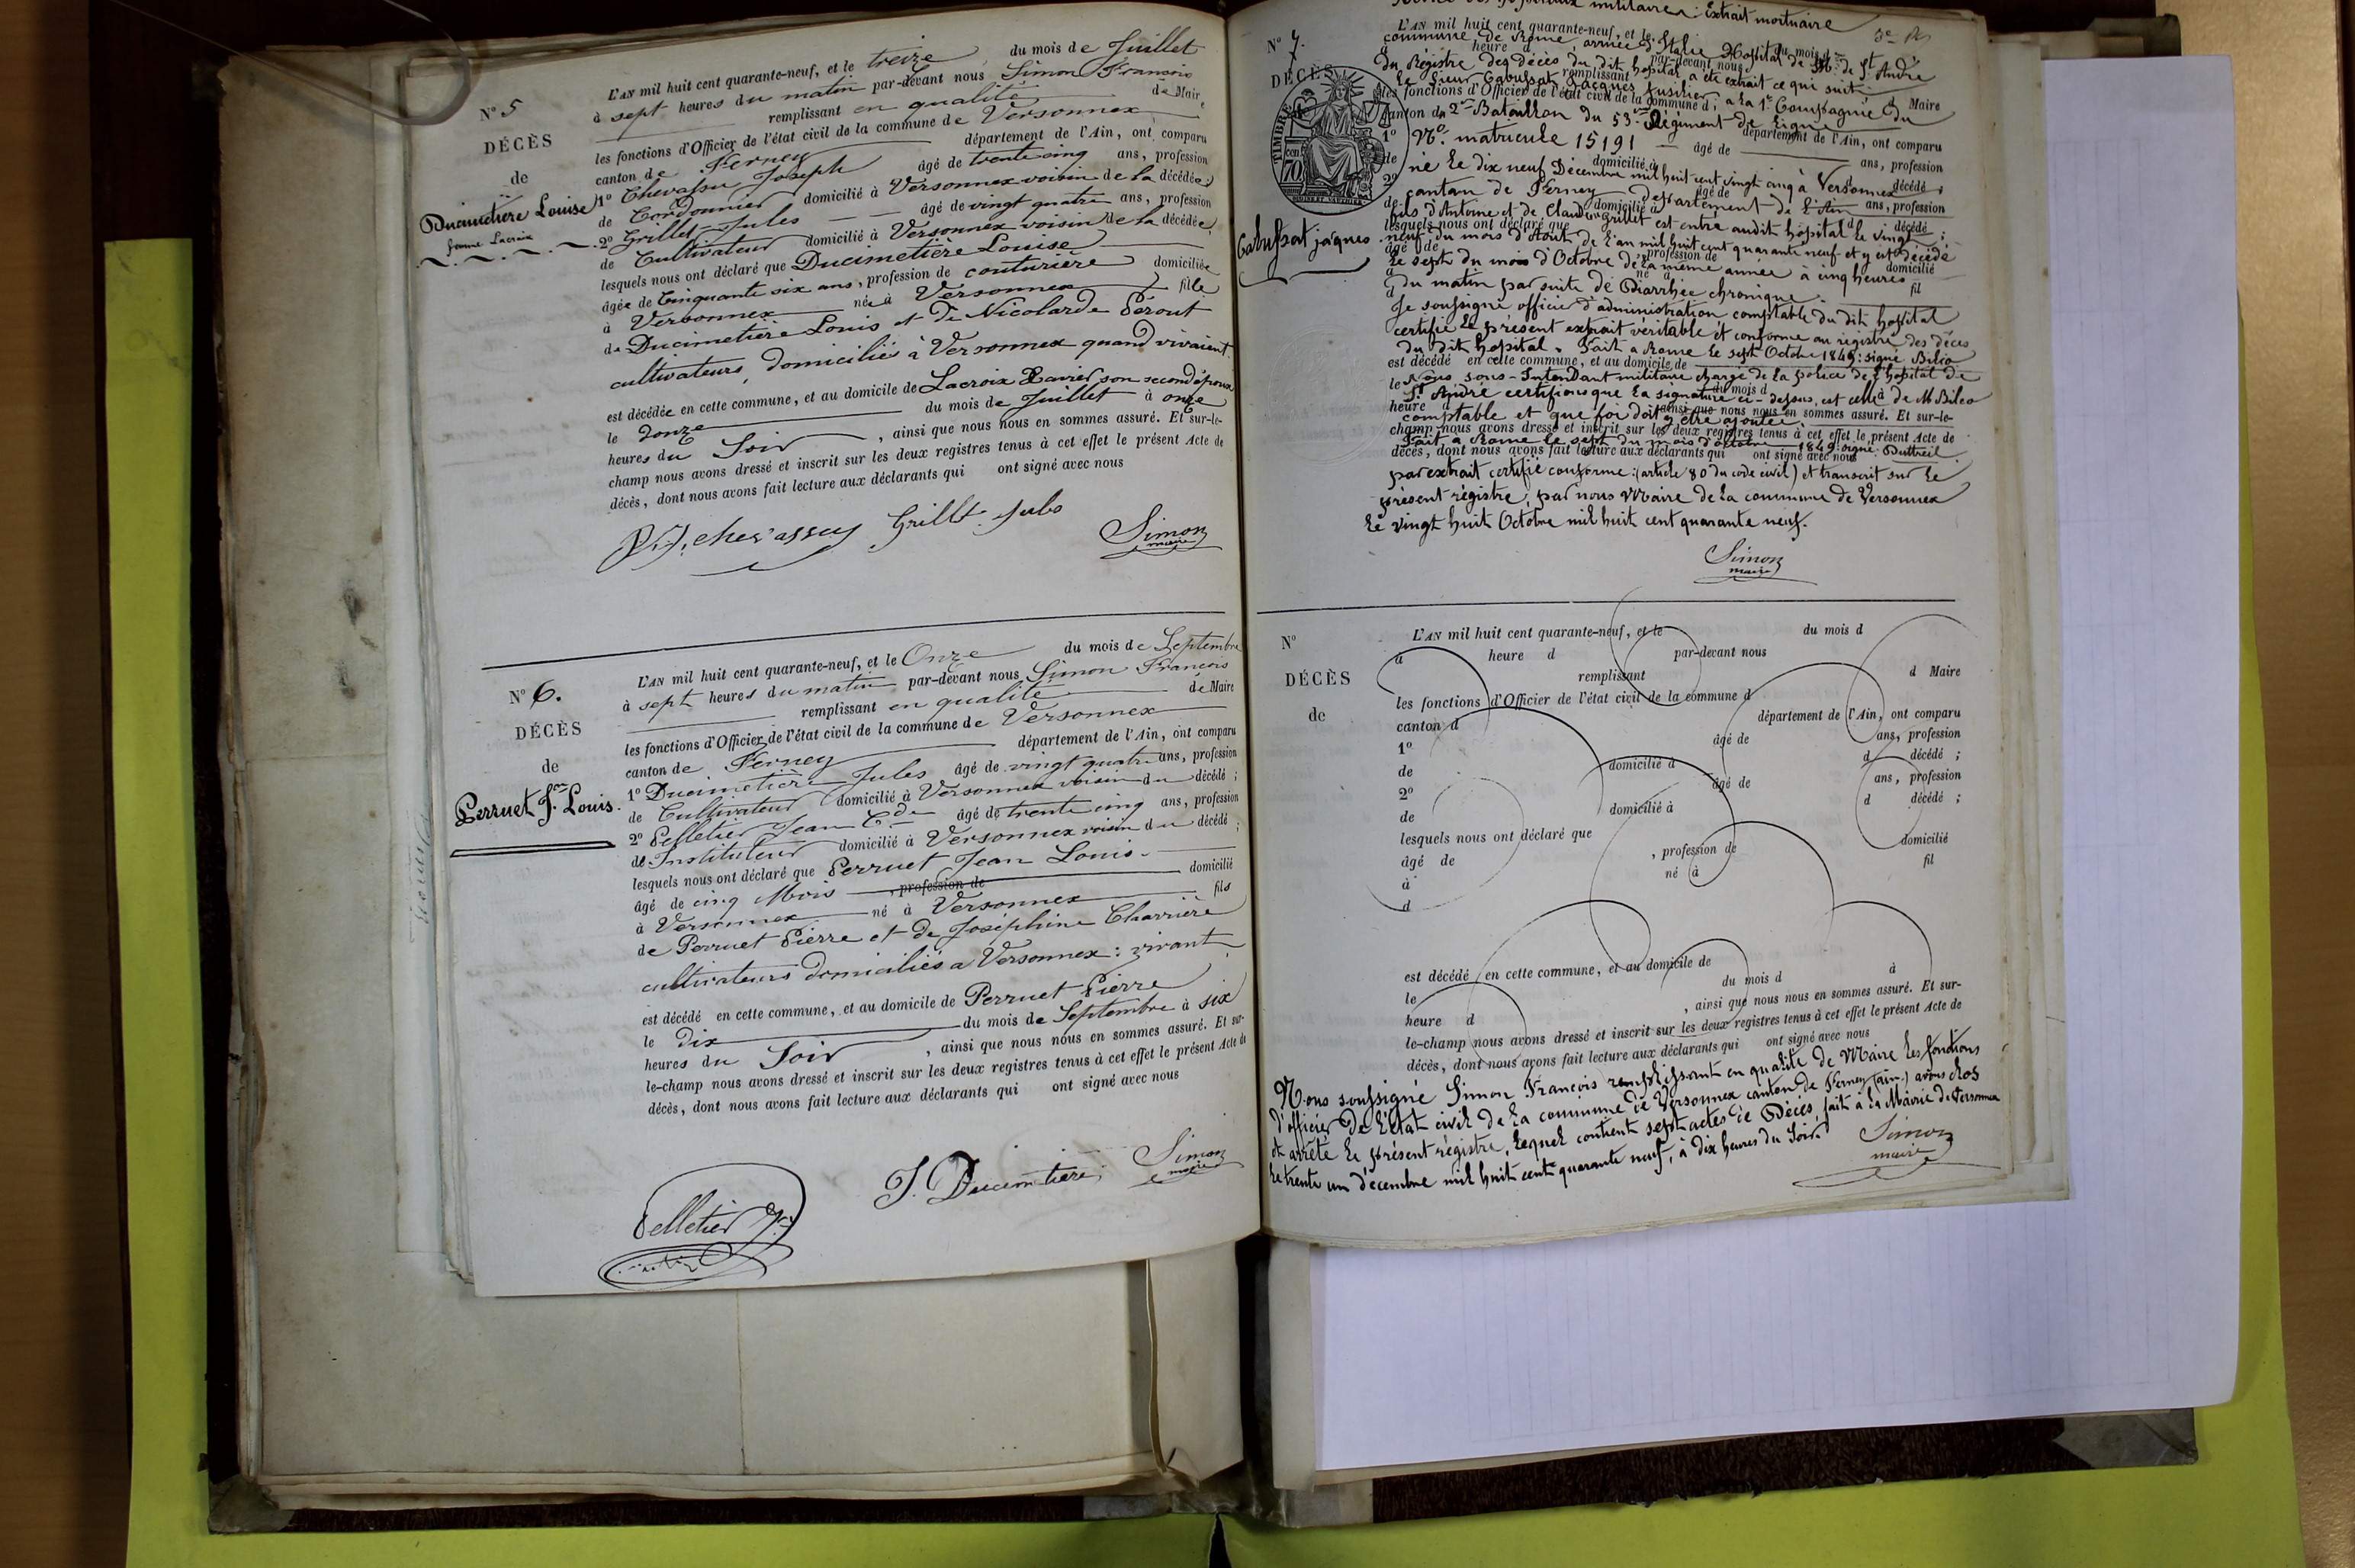 N° 5
DÉCÈS
de
Ducimetière Louise
femme Lacroix
L'AN mil huit cent quarante-neuf, et le treize du mois de Juillet
à sept heures du matin par-devant nous Simon François
remplissant en qualité de Maire
les fonctions d'Officier de l'état civil de la commune de Versonnex
canton de Ferney département de l'Ain, ont comparu
1° Chevassu Joseph âgé de trente cinq ans, profession
de Cordonnier domicilié à Versonnex voisin de la décédée;
2° Grillet Jules âgé de vingt quatre ans, profession
de Cultivateur domicilié à Versonnex voisin de la décédée;
lesquels nous ont déclaré que Ducimetière Louise
âgée de Cinquante six ans, profession de couturière domiciliée
à Versonnex née à Versonnex fille
de Ducimetière Louis et de Nicolarde Pérout
cultivateurs domiciliés à Versonnex quand vivaient
est décédée en cette commune, et au domicile de Lacroix Xavier son second époux
le douze du mois de Juillet à onze
heures du Soir, ainsi que nous nous en sommes assuré. Et sur-le-
champ nous avons dressé et inscrit sur les deux registres tenus à cet effet le présent Acte de
décès, dont nous avons fait lecture aux déclarants qui ont signé avec nous
chevassu Grillet Jules Simon
maire
N° 6.
DÉCÈS
de
Perruet Jn Louis.
L'AN mil huit cent quarante-neuf, et le Onze du mois de Septembre
à sept heures du matin par-devant nous Simon François
remplissant en qualité de Maire
les fonctions d'Officier de l'état civil de la commune de Versonnex
canton de Ferney département de l'Ain, ont comparu
1° Ducimetière Jules âgé de vingt quatre ans, profession
de Cultivateur domicilié à Versonnex voisin du décédé;
2° Pelletier Jean Cde âgé de trente cinq ans, profession
de Instituteur domicilié à Versonnex voisin du décédé;
lesquels nous ont déclaré que Perruet Jean Louis
âgé de cinq Mois, profession de domicilié
à Versonnex né à Versonnex fils
de Perruet Pierre et de Joséphine Charrière
cultivateurs domiciliés a Versonnex: vivant
est décédé en cette commune, et au domicile de Perruet Pierre
le dix du mois de Septembre à six
heures du Soir, ainsi que nous nous en sommes assuré. Et sur-
le-champ nous avons dressé et inscrit sur les deux registres tenus à cet effet le présent Acte de
décès, dont nous avons fait lecture aux déclarants qui ont signé avec nous
Pelletier J. Ducimetière Simon
maire
militaires: Extrait mortuaire
N° 7.
DÉCÈS
TIMBRE
Cabussat jacques
L'AN mil huit cent quarante-neuf, et le du mois d
commune de Rome, armée d'Italie Hôpital de St André
heure d par-devant nous
du Régistre des décès du dit hopital a été extrait ce qui suit:
remplissant d Maire
le Sieur Cabussat Jacques fusilier a la 1e Compagnie du
les fonctions d'Officier de l'état civil de la commune d
canton d département de l'Ain, ont comparu
2me Bataillon du 53me Régiment de Ligne
1° âgé de ans, profession
No. matricule 15191
de domicilié à d décédé;
né le dix neuf Décembre mil huit cent vingt cinq à Versonnex
2° âgé de ans, profession
canton de Ferney département de l'Ain
de domicilié à d décédé;
fils d'Antoine et de Claudine Grillet est entré audit hôpital le vingt
lesquels nous ont déclaré que
neuf du mois d'Août de l'an mil huit cent quarante neuf et y est décédé
âgé de, profession de domicilié
le sept du mois d'Octobre de la même année à cinq heures
à né à fil
du matin par suite de Diarrhée chronique.
Je soussigné officier d'administration comptable du dit hopital
certifie le présent extrait véritable et conforme au régistre des décès
du dit hopital. Fait a Rome le sept Octobre 1849: signé Bileo
est décédé en cette commune, et au domicile de
le
Nous sous-Intendant militaire chargé de la police de l'hopital de
du mois d à
St André certifions que la signature ci-dessus est celle de M Bileo
heure d, ainsi que nous nous en sommes assuré. Et sur-le-
comptable et que foi doit y être ajoutée.
champ nous avons dressé et inscrit sur les deux registres tenus à cet effet le présent Acte de
Fait a Rome le sept du mois d'octobre 1849: signé: Dutheil
décès, dont nous avons fait lecture aux déclarants qui ont signé avec nous
par extrait certifié conforme: (article 80 du code civil) et transcrit sur le
présent régistre, par nous Maire de la commune de Versonnex
le vingt huit Octobre mil huit cent quarante neuf.
Simon
maire
N°
DÉCÈS
de
L'AN mil huit cent quarante-neuf, et le du mois d
à heure d par-devant nous
remplissant d Maire
les fonctions d'Officier de l'état civil de la commune d
canton d département de l'Ain, ont comparu
1° âgé de ans, profession
de domicilié à d décédé;
2° âgé de ans, profession
de domicilié à d décédé;
lesquels nous ont déclaré que
âgé de, profession de domicilié
à né à fil
d
est décédé en cette commune, et au domicile de
le du mois d à
heure d, ainsi que nous nous en sommes assuré. Et sur-
le-champ nous avons dressé et inscrit sur les deux registres tenus à cet effet le présent Acte de
décès, dont nous avons fait lecture aux déclarants qui ont signé avec nous
Nous soussigné Simon François remplissant en qualité de Maire les fonctions
d'officier de l'état civil de la commune de Versonnex canton de Ferney (ain) avons clos
et arrêté le présent régistre, lequel contient sept actes de Décès, fait à la Mairie de Versonnex
le trente un décembre mil huit cent quarante neuf, à dix heures du Soir.
Simon
maire